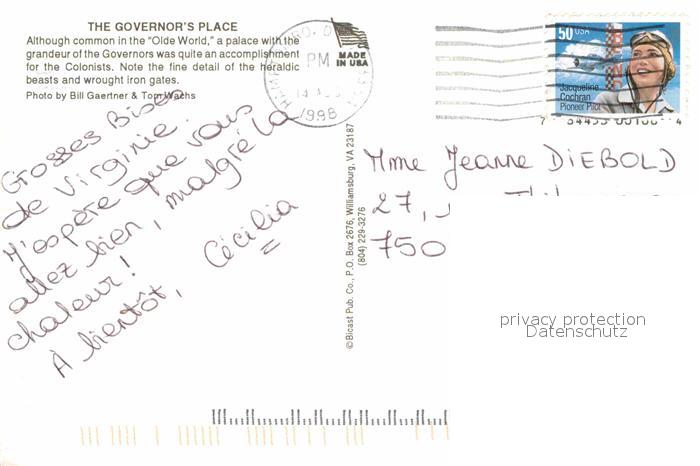 THE GOVERNOR'S PLACE
Although common in the "Olde World," a palace with the
grandeur of the Governors was quite an accomplishment
for the Colonists. Note the fine detail of the heraldic
beasts and wrought iron gates.
Photo by Bill Gaertner & Tom Wachs
MADE
IN USA
PM
1998
50 USA
Jacqueline
Cochran
Pioneer Pilot
Grosses Bises
de Virginie.
J'espère que vous
allez bien, malgré la
chaleur!
À bientôt, Cécilia
©Bicast Pub. Co., P.O. Box 2676, Williamsburg, VA 23187
(804) 229-3276
Mme Jeanne DIEBOLD
27,
750
privacy protection
Datenschutz